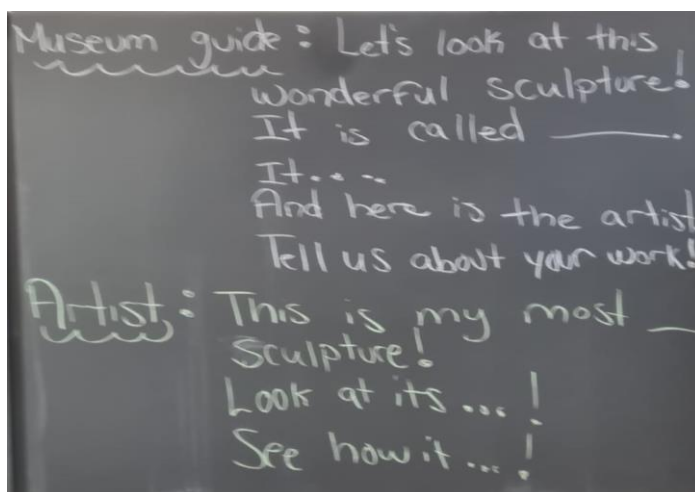 Museum guide: Let's look at this
wonderful sculpture!
It is called ____.
It....
And here is the artist
Tell us about your work!
Artist: This is my most __
sculpture!
Look at its ...!
See how it ...!